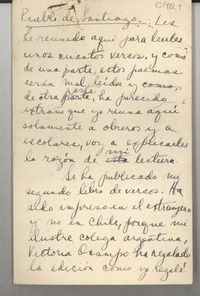 Pueblo de Santiago: Les
he reunido aquí para leerles
unos cuantos versos, y como
de una parte, estos poemas
serán mal leídos y como,
de otra parte, ha parecido
extraño que yo reuna aquí
solamente a obreros y a
escolares, voy a explicarles
la razón de esta mi lectura.
Se ha publicado mi
segundo libro de versos. Ha
sido impreso en el extranjero
y no en Chile, porque mi
ilustre colega argentina,
Victoria Ocampo ha regalado
la edición como yo regalé